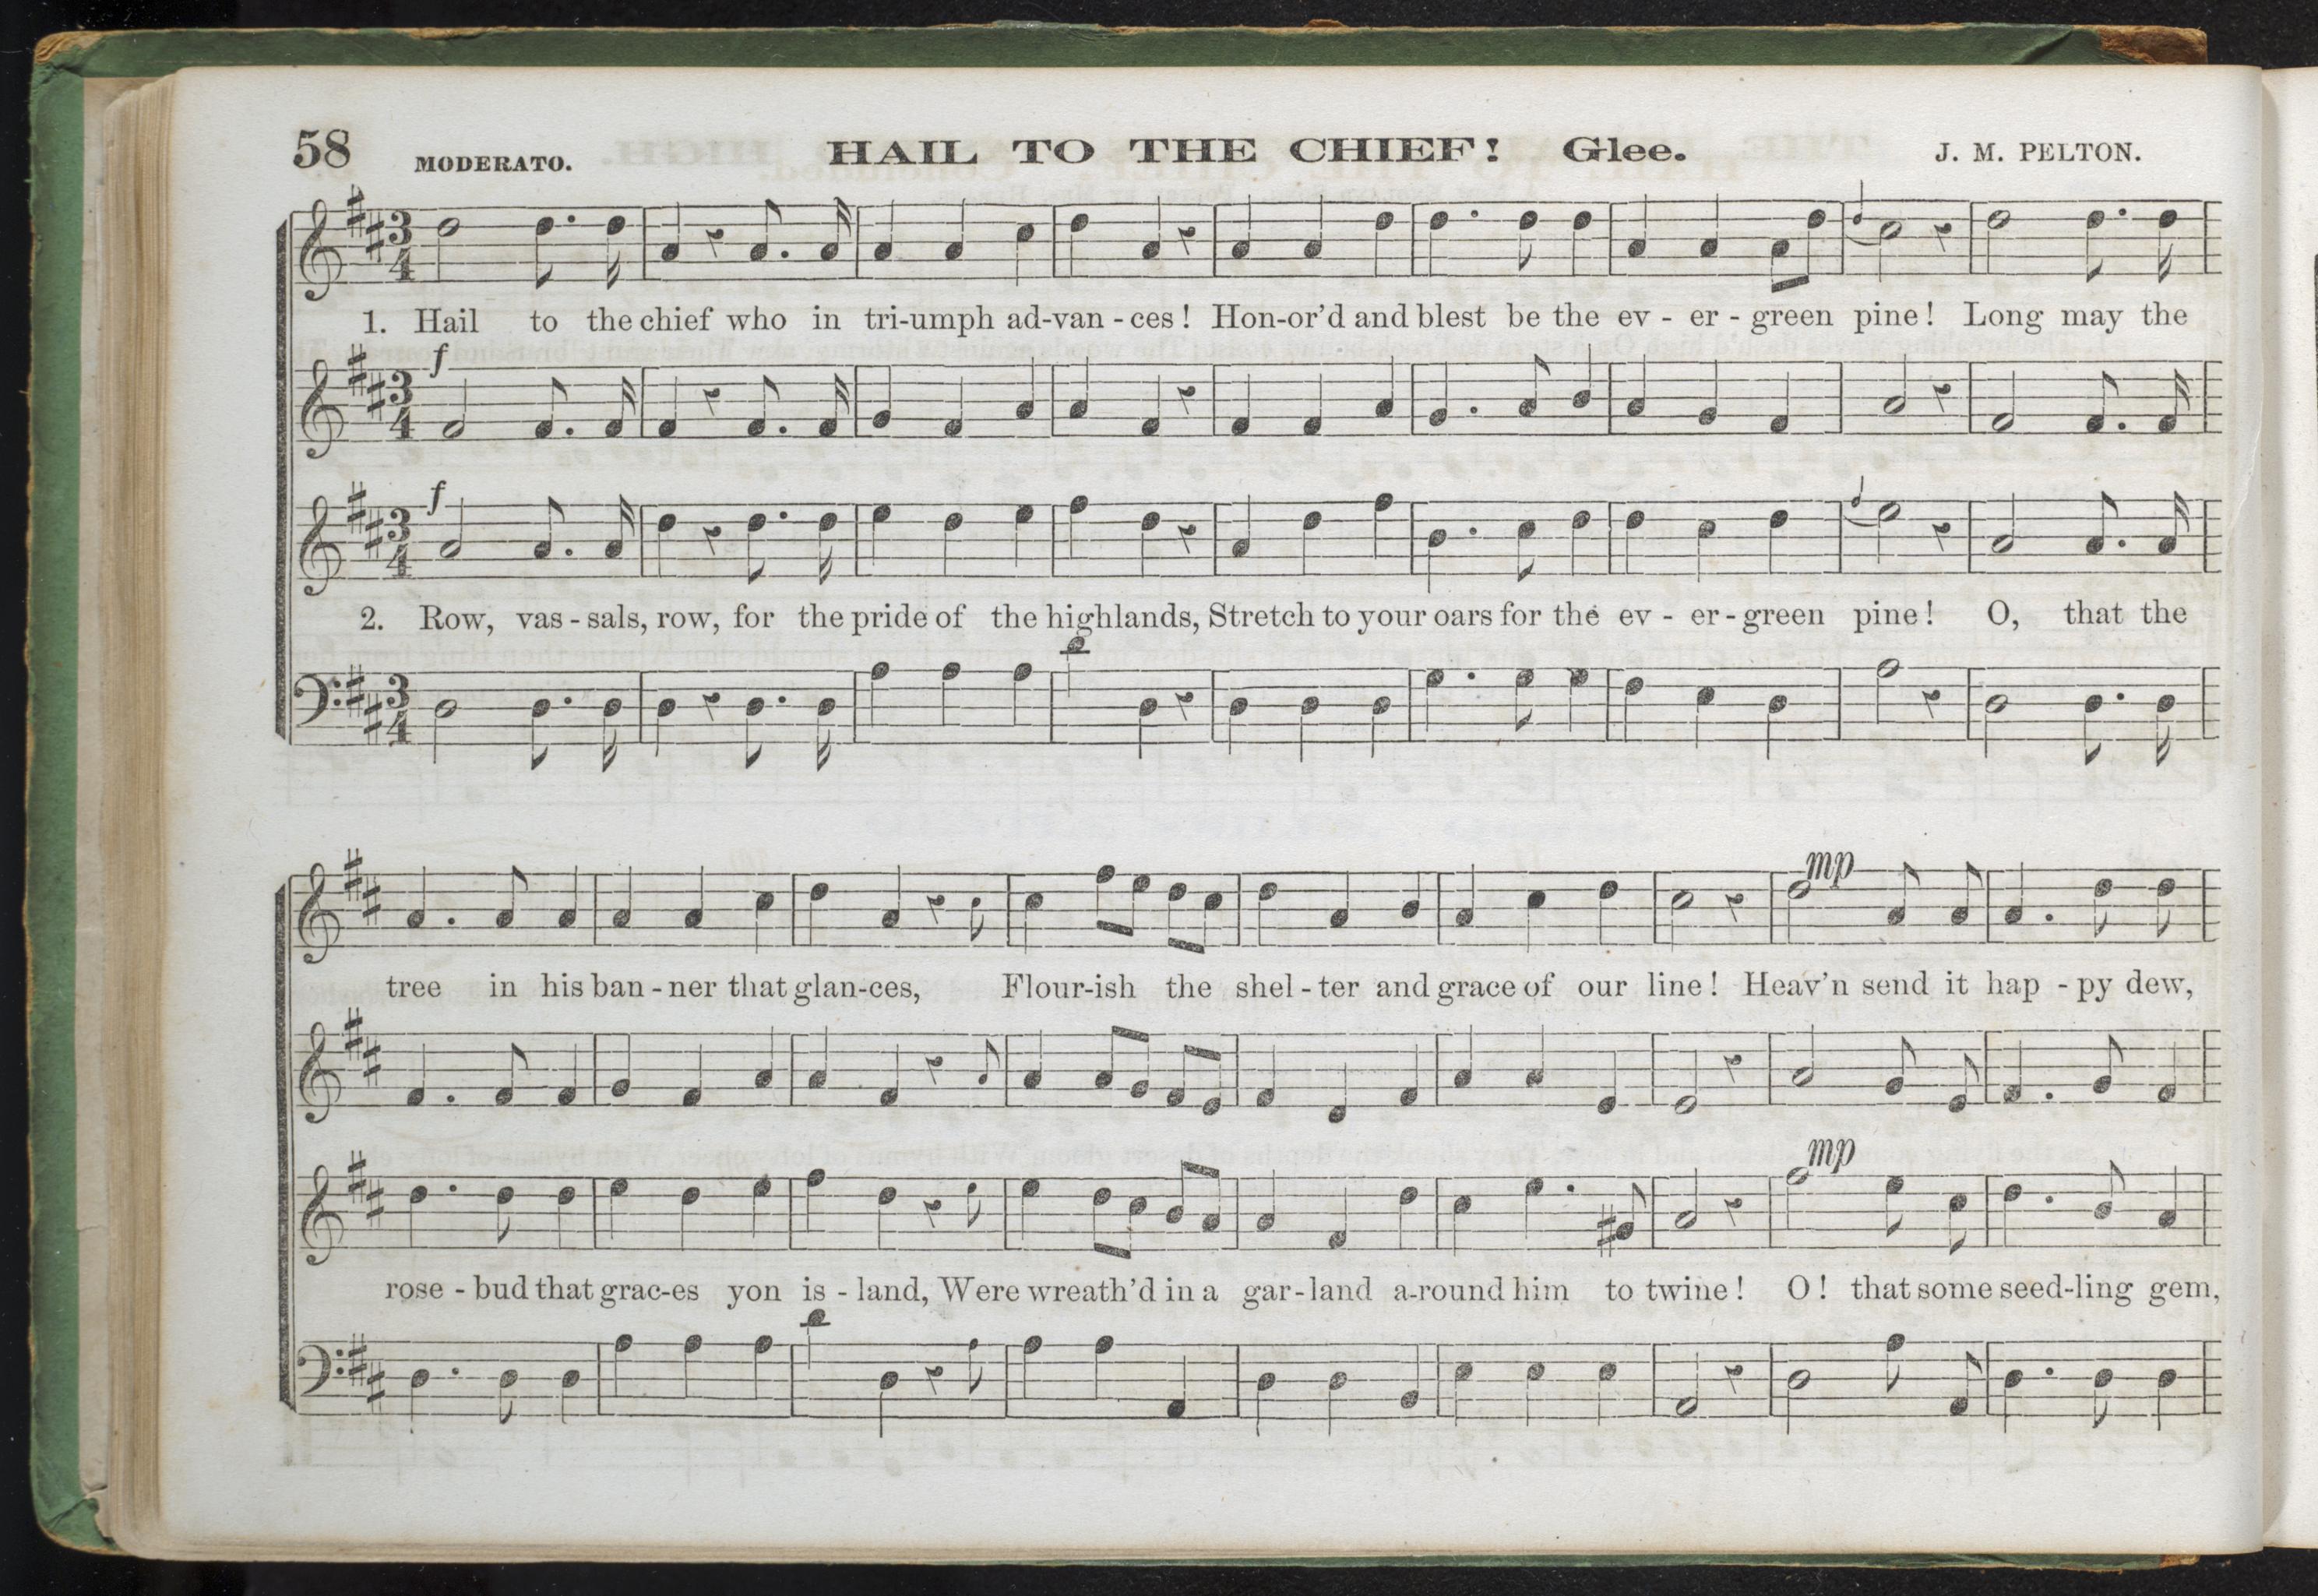 58 MODERATO. HAIL TO THE CHIEF! Glee. J. M. PELTON.
1. Hail to the chief who in tri-umph ad-van - ces! Hon-or'd and blest be the ev - er - green pine! Long may the
f
f
2. Row, vas - sals, row, for the pride of the highlands, Stretch to your oars for the ev - er - green pine! O, that the
mp
tree in his ban - ner that glan-ces, Flour-ish the shel - ter and grace of our line! Heav'n send it hap - py dew,
mp
rose - bud that grac-es yon is - land, Were wreath'd in a gar - land a-round him to twine! O! that some seed-ling gem,